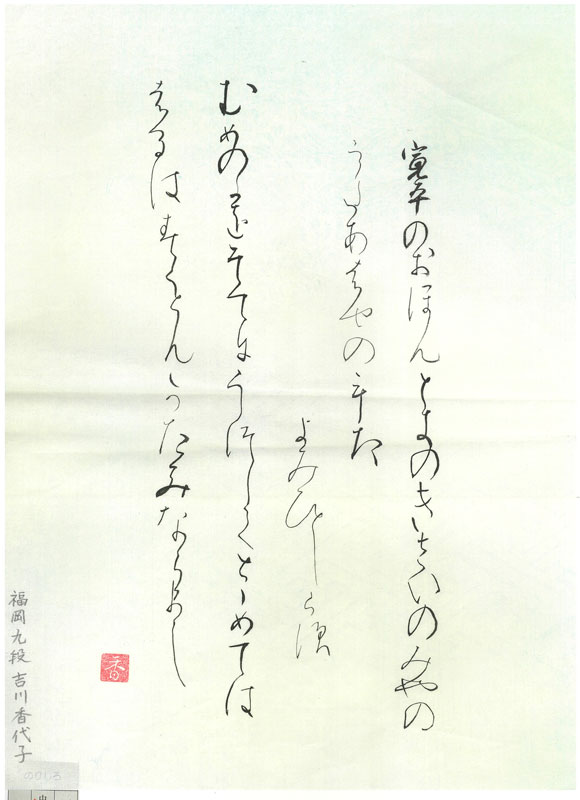 寛平のおほんときのきさいのみやの
うたあはせのうた
よみひとしらす
むめのかをそてにうつしてとゝめては
はるはすくともかたみならまし
香
福岡九段 吉川香代子